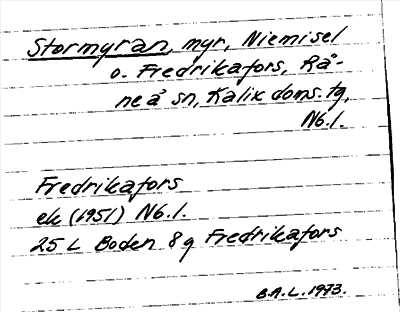 Stormyran, myr, Niemisel
o. Fredrikafors, Rå-
neå sn, Kalix doms. tg,
Nb.l.
Fredrikafors
ek (1951) Nb.l.
25 L Boden 8 g Fredrikafors
B.A.L. 1973.